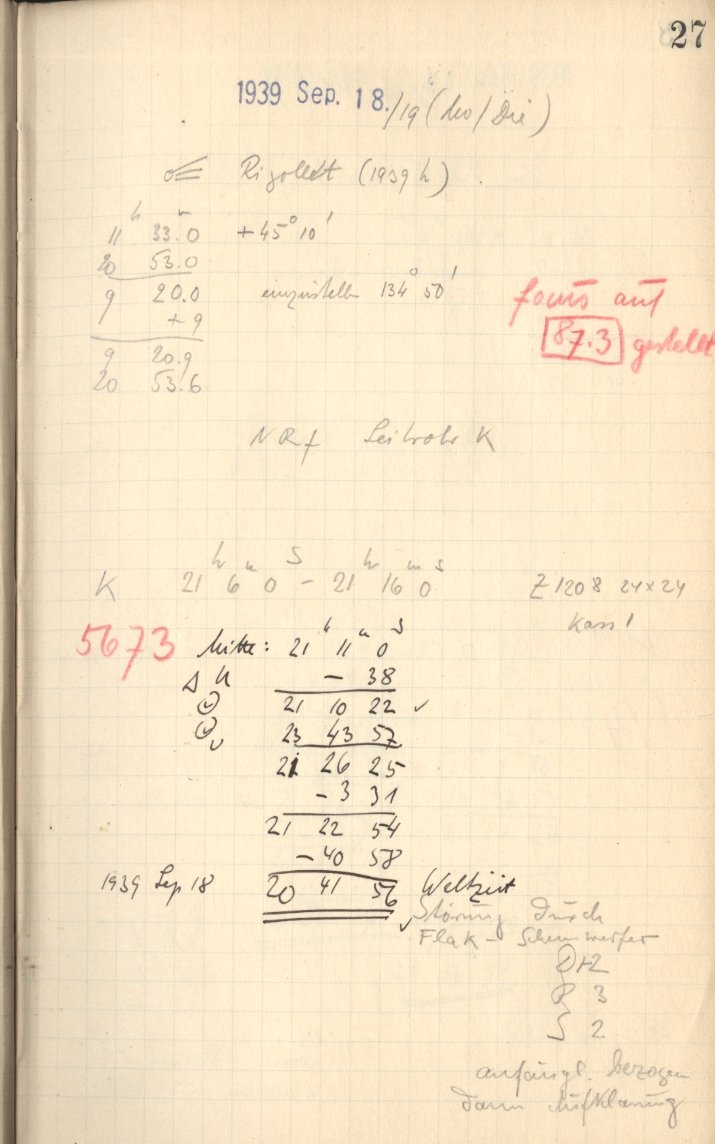 27
1939 Sep. 18./19 (Mo/Die)
☄ Rigollet (1939 h)
11 h 33.0 m +45° 10'
20 53.0
9 20.0 einzustellen 134° 50'
+9
9 20.9
20 53.6
focus auf
87.3 gestellt
NRf Leitrohr K
K 21 h 6 m 0 s – 21 h 16 m 0 s Z 1208 24x24
Kass 1
5673 Mitte: 21 h 11 m 0 s
Δ U – 38
21 10 22 ✓
23 43 57
21 26 25
– 3 31
21 22 54
– 40 58
1939 Sep 18 20 41 56 Weltzeit
✓ Störung durch
Flak-Scheinwerfer
D+2
R 3
S 2
anfängl. bezogen
dann Aufklarung